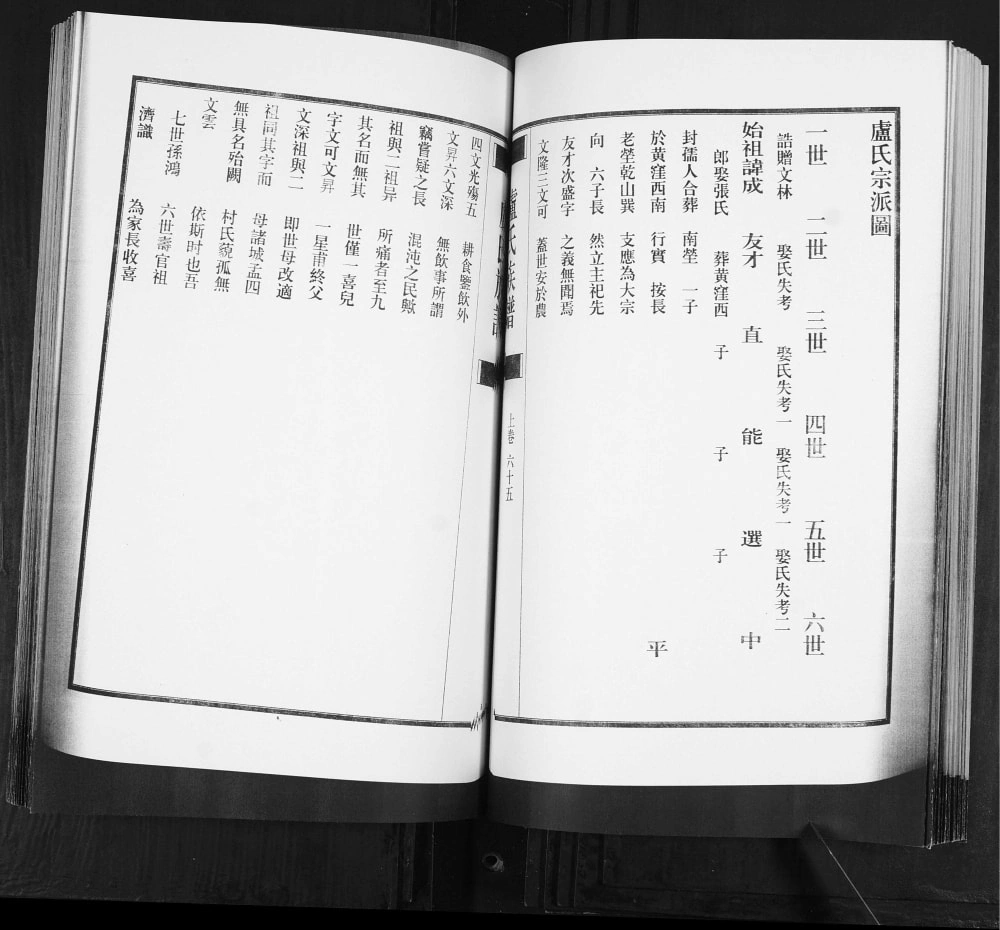 盧氏宗派圖
一世 二世 三世 四世 五世 六世
誥贈文林 娶氏失考 娶氏失考一 娶氏失考一 娶氏失考二
始祖諱成 友才 直 能 選 中
郎娶張氏 葬黄窪西 子 子 子
封孺人合葬 南塋 一子
於黄窪西南 行實 按長 平
老塋乾山巽 支應為大宗
向 六子長 然立主祀先
友才次盛字 之義無聞焉
文隆三文可 蓋世安於農
盧氏族譜 上卷 六十五
四文光殤五 耕食鑒飲外
文昇六文深 無飲事所謂
竊嘗疑之長 混沌之民歟
祖與二祖异 所痛者至九
其名而無其 世僅一喜兒
字文可文昇 一星甫終父
文深祖與二 即世母改適
祖同其字而 母諸城孟四
無具名殆闕 村氏藐孤無
文雲 依斯时也吾
七世孫鴻 六世壽官祖
濟識 為家長收喜